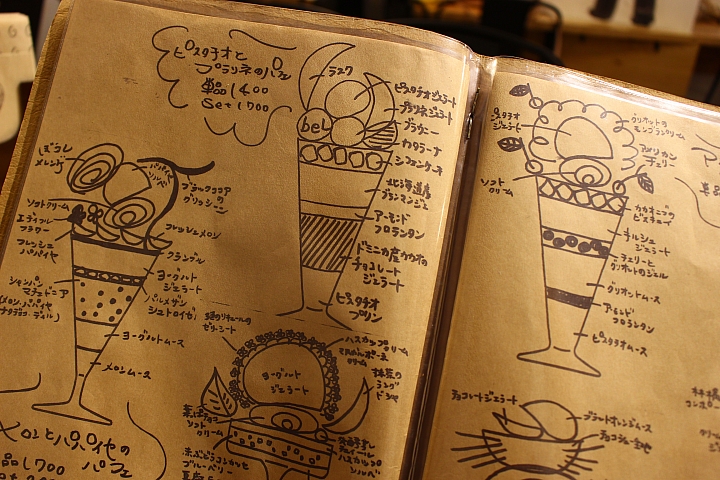 ピスタチオと
プラリネのパフェ
単品1,400
Set 1,700
ラスク
ピスタチオジェラート
プラリネジェラート
ブラウニー
beL
カタラーナ
シフォンケーキ
北海道産
ブランマンジェ
アーモンド
フロランタン
ドミニカ産カカオの
チョコレート
ジェラート
ピスタチオ
プリン
メレンゲ
パパイヤ
ソルベ
ブラックココア
の
グリッシーニ
ソフトクリーム
エディブル
フラワー
フレッシュ
パパイヤ
フレッシュメロン
クランブル
シャンパン
マチェドニア
ヨーグルト
ジェラート
パルメザン
シュトロイゼル
ヨーグルトムース
メロンムース
メロンとパパイヤの
パフェ
単品1,700
ゼリーシート
ハスカップクリーム
ヨーグルト
ジェラート
抹茶の
ラング
ド シャ
ソフト
クリーム
ブルーベリー
ハスカップ
ソルベ
ピスタチオ
ジェラート
グリオットの
モンブランクリーム
アメリカン
チェリー
ソフト
クリーム
カカオニブの
ビスキュイ
キルシュ
ジェラート
チェリーと
グリオットのジュレ
グリオットムース
アーモンド
フロランタン
ピスタチオムース
チョコレートジェラート
ブラッドオレンジムース
チョコジェノワーズ